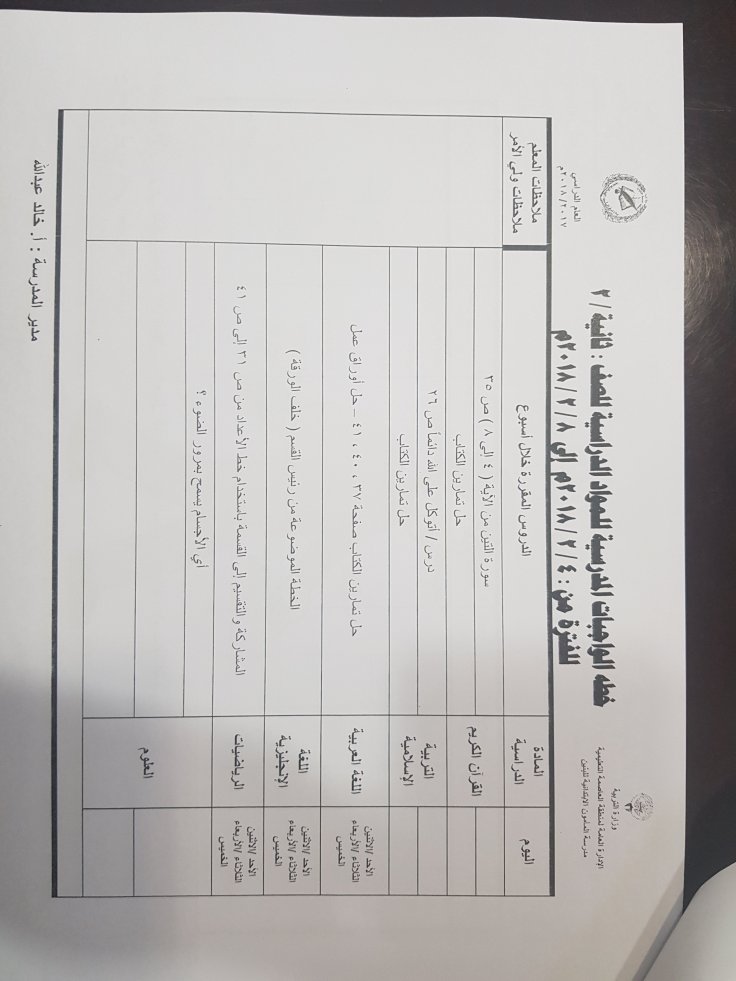 وزارة التربية
الإدارة العامة لمنطقة العاصمة التعليمية
مدرسة المأمون الابتدائية للبنين
العام الدراسي
٢٠١٨/٢٠١٧م
خطه الواجبات المدرسية للمواد الدراسية للصف : ثانية / ٢
للفترة من : ٤ / ٢ / ٢٠١٨م إلى ٨ / ٢ / ٢٠١٨م
اليوم
المادة الدراسية
الدروس المقررة خلال أسبوع
ملاحظات المعلم
ملاحظات ولي الأمر
القرآن الكريم
سورة التين من الآية ( ٤ إلى ٨ ) ص ٣٥
حل تمارين الكتاب
التربية الإسلامية
درس / أتوكل على الله دائماً ص ٢٦
حل تمارين الكتاب
الأحد /الاثنين
الثلاثاء /الأربعاء
الخميس
اللغة العربية
حل تمارين الكتاب صفحة ٣٧ ، ٤٠ ، ٤١ – حل أوراق عمل
الأحد /الاثنين
الثلاثاء /الأربعاء
الخميس
اللغة الإنجليزية
الخطة الموضوعة من رئيس القسم ( خلف الورقة )
الأحد /الاثنين
الثلاثاء /الأربعاء
الخميس
الرياضيات
المشاركة والتقسيم إلى القسمة باستخدام خط الأعداد من ص ٣١ إلى ص ٤١
العلوم
أي الأجسام يسمح بمرور الضوء ؟
مدير المدرسة : أ. خالد عبدالله